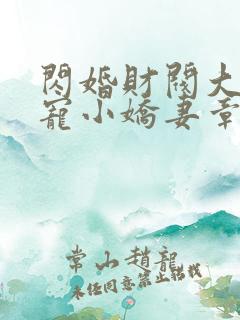 閃婚財閥大
寵小嬌妻章
常山趙龍
未任同意禁止轉載